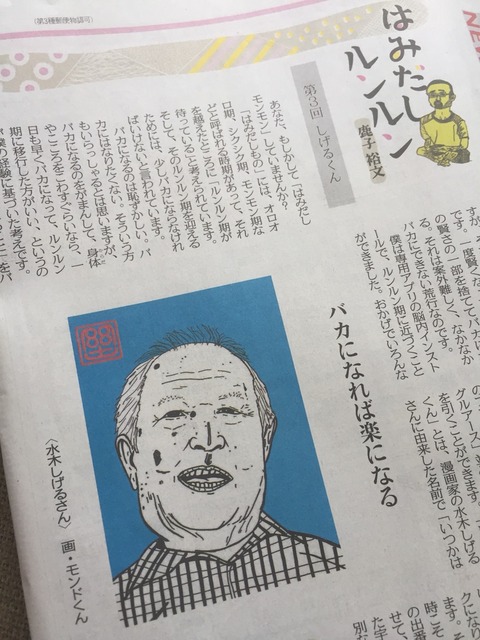 (第3種郵便物認可)
はみだし
ルンルン
鹿子 裕文
第3回 しげるくん
あなた、もしかして「はみだし
モンモン」していませんか?
「はみだしもの」には、オロオ
ロ期、シクシク期、モンモン期な
どと呼ばれる時期があって、それ
を越えたところに「ルンルン期が
待っている」と考えられています。
そして、そのルンルン期を迎える
ためには、少しバカにならなけれ
ばいけないと言われています。
バカになるのは恥ずかしい。バ
カにはなりたくない。そういう方
もいらっしゃるとは思いますが、
バカになるのをがまんして、身体
やこころをこわすぐらいなら、一
日も早くバカになって、ルンルン
期に移行した方がいい、というの
が僕の経験に基づいた考えです。
です。一度賢くな
の賢さの一部を捨てて、バカに
る。それは案外難しく、なかなか
バカにできない荒行なのです。
僕は専用アプリの脳内インスト
ールで、ルンルン期に近づくこと
ができました。おかげでいろんな
バカになれば楽になる
グルアース」
を引くことができます。
くん」とは、漫画家の水木しげる
さんに由来した名前で「いつかは
〈水木しげるさん〉 画・モンドくん